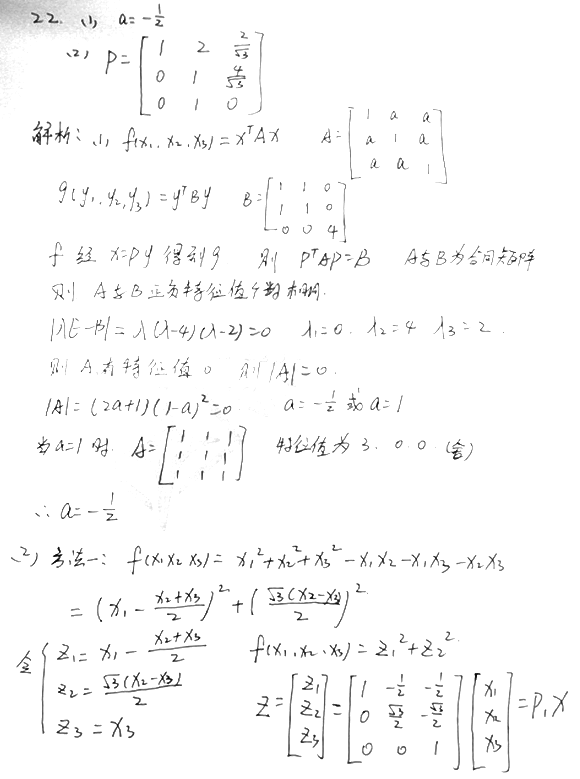 22. (1) a=-1/2
(2) P=[1 2 2/√3; 0 1 4/√3; 0 1 0]
解析: (1) f(x₁, x₂, x₃)=xᵀAx A=[1 a a; a 1 a; a a 1]
g(y₁, y₂, y₃)=yᵀBy B=[1 1 0; 1 1 0; 0 0 4]
f 经 x=Py 得到g 则 PᵀAP=B A与B为合同矩阵
则 A与B正负特征值个数相同.
|λE-B|=λ(λ-4)(λ-2)=0 λ₁=0. λ₂=4 λ₃=2.
则 A有特征值0 则|A|=0.
|A|=(2a+1)(1-a)²=0 a=-1/2 或 a=1
当a=1时. A=[1 1 1; 1 1 1; 1 1 1] 特征值为 3. 0. 0. (舍)
∴ a=-1/2
(2) 方法一: f(x₁x₂x₃)= x₁²+x₂²+x₃²-x₁x₂-x₁x₃-x₂x₃
=(x₁-(x₂+x₃)/2)²+(√3(x₂-x₃)/2)²
令 { z₁=x₁-(x₂+x₃)/2 f(x₁,x₂,x₃)=z₁²+z₂²
z₂=√3(x₂-x₃)/2 z=[z₁; z₂; z₃]=[1 -1/2 -1/2; 0 √3/2 -√3/2; 0 0 1][x₁; x₂; x₃]=P₁X
z₃=x₃